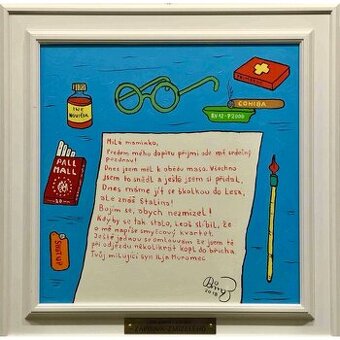 COHIBA
PALL
MALL
20
Milá maminko,
Předem mého dopisu přijmi ode mě srdečný
pozdrav!
Dnes jsem měl k obědu maso. Všechno
jsem to snědl a ještě jsem si přidal.
Dnes máme jít se školkou do Lesa,
ale znáš Stalina!
Bojím se, abych nezmizel!
Kdyby se tak stalo, Leoš slíbil, že
o mě napíše smyčcový kvartet.
Ještě jednou se omlouvám že jsem tě
při odjezdu několikrát kopl do břicha
Tvůj milující syn Ilja Muromec
2018